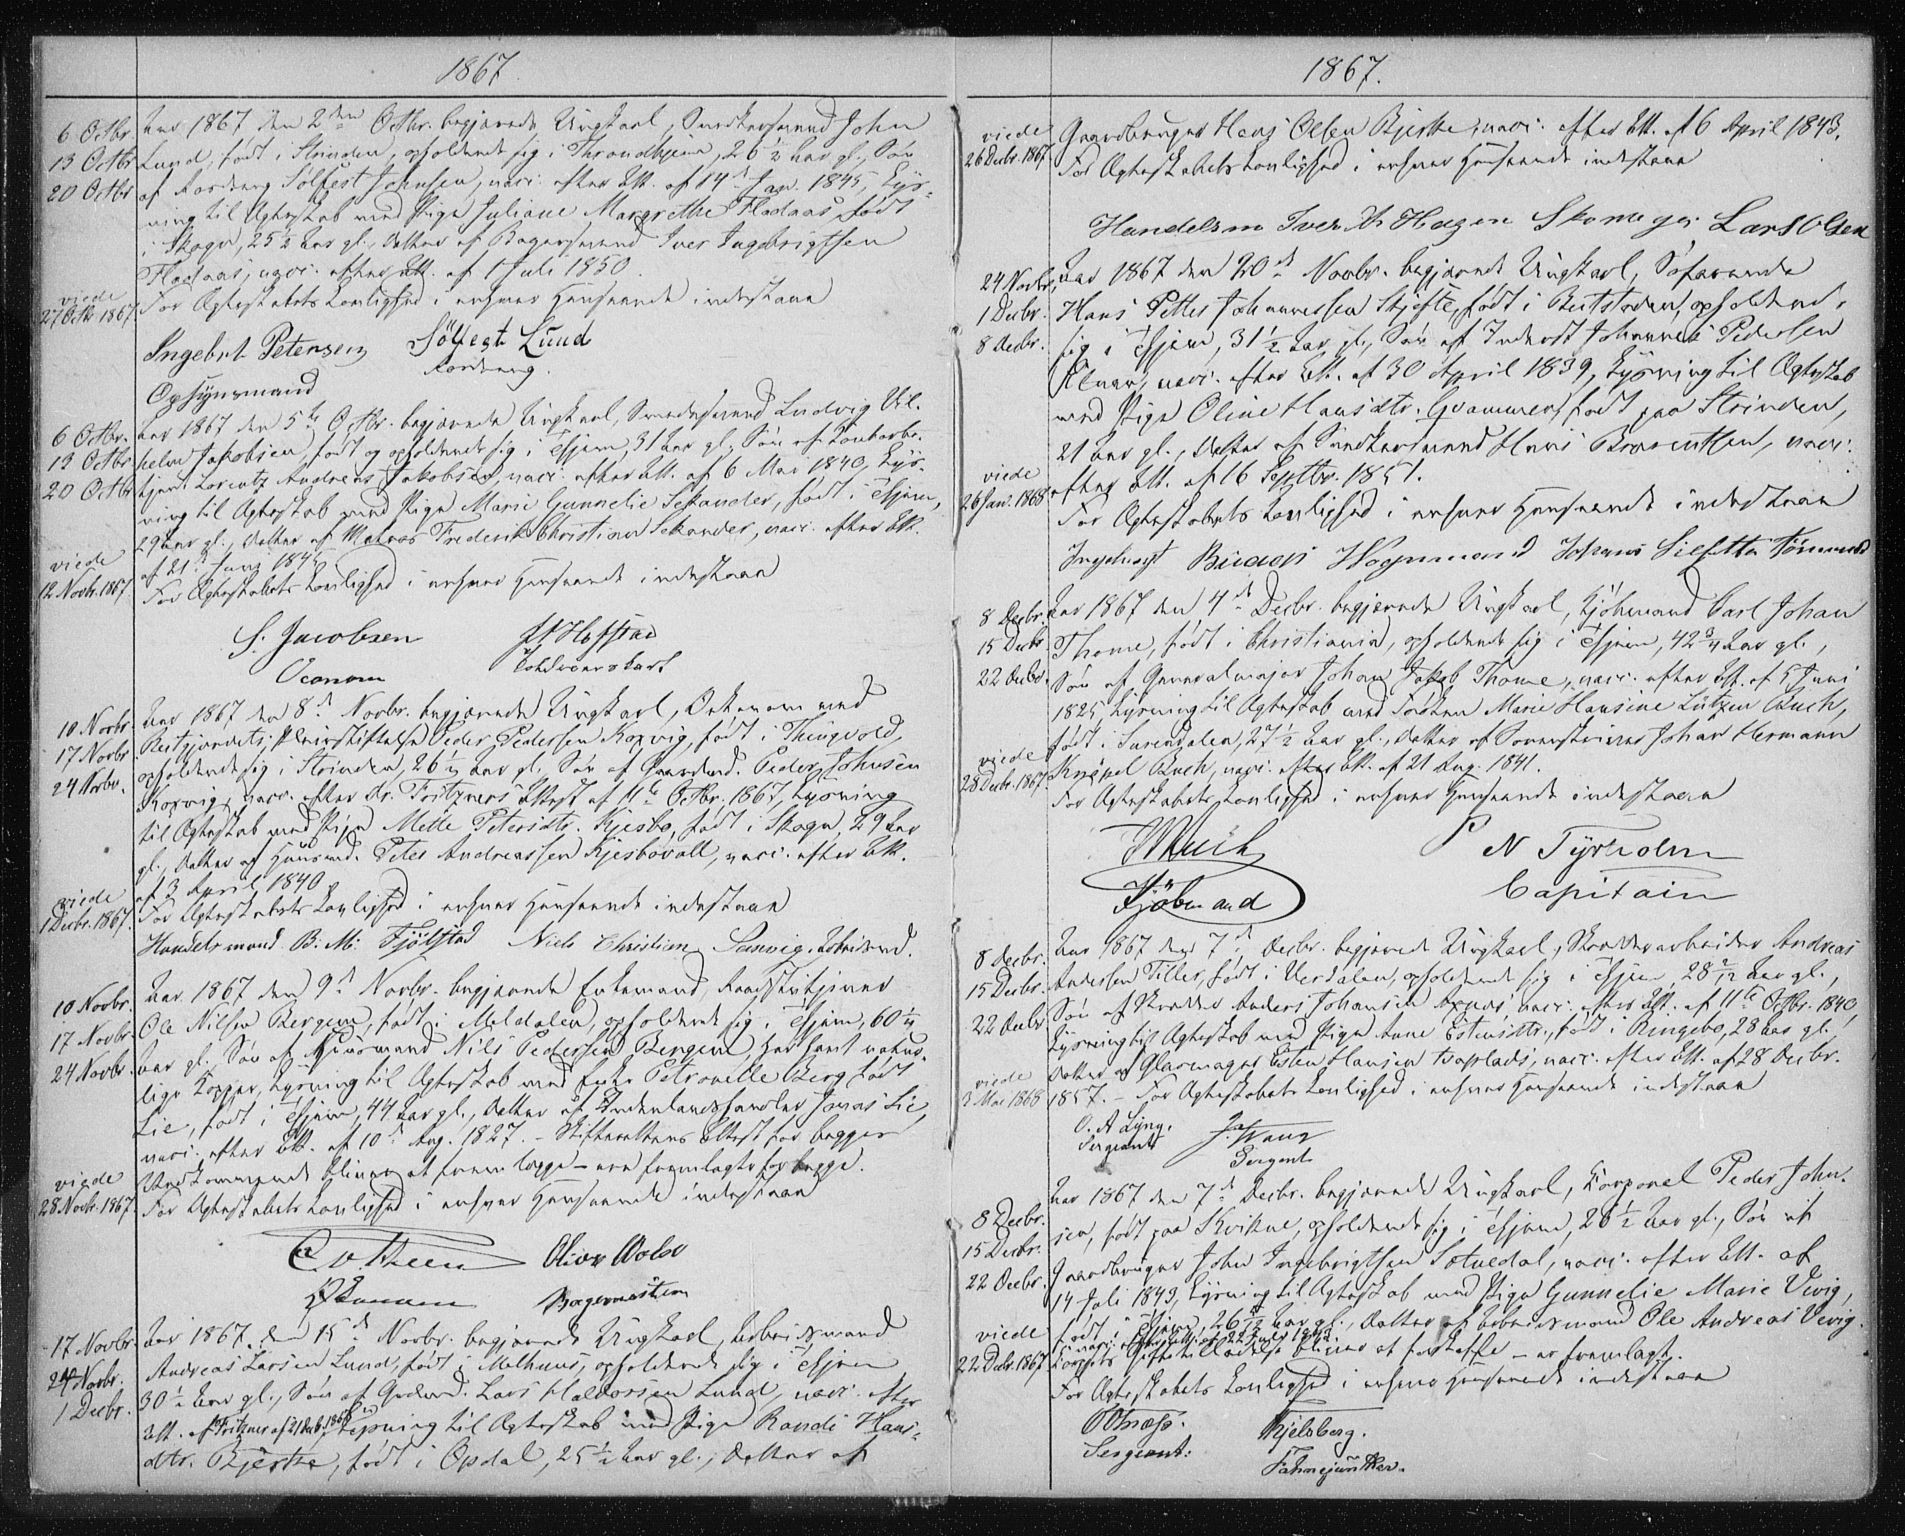 1867.
6 Octbr. Aar 1867 den 2den Octbr. begjærede Ungkarl, Snedkersvend John
13 Octbr. Lund, født i Strinden, opholdende sig i Throndhjem, 26 1/2 Aar gl., Søn
20 Octbr. af Gardbrg. Sølfest Johnsen, vacc. efter Att. af 14de Jan. 1845, Lys-
ning til Ægteskab med Pige Juliane Margrethe Fladaas, født
i Skogn, 25 1/2 Aar gl., Datter af Bagersvend Iver Ingebrigtsen
Fladaas, vacc. efter Att. af 1 Juli 1850.
viede
27 Octbr 1867 For Ægteskabets Lovlighed i enhver Henseende indestaae
Ingebrt Petersen Sölfest Lund
Opsynsmand Gardbrg.
6 Octbr. Aar 1867 den 5te Octbr. begjærede Ungkarl, Smedesvend Ludvig Vil-
13 Octbr. helm Jakobsen, født og opholdende sig i Thjem, 31 Aar gl., Søn af
20 Octbr. Lorentz Andreas Jakobsen, vacc. efter Att. af 6 Mai 1840, Lys-
ning til Ægteskab med Pige Marie Gunnelie Sekander, født i Thjem,
29 Aar gl., Datter af Matros Frederik Christian Sekander, vacc. efter Att.
viede af 21de Juni 1845
12 Novbr. 1867. For Ægteskabets Lovlighed i enhver Henseende indestaae
S. Jacobsen Hofstad
Oconom Toldvagtsbart
10 Novbr. Aar 1867 den 8de Novbr. begjærede Ungkarl, Oekonom ved
17 Novbr. Reitgjerdets Pleiestiftelse Peder Pedersen Korsvig, født i Thingvold,
24 Novbr. opholdende sig i Strinden, 26 Aar gl., Søn af Gaardmd. Peder Johnsen
Korsvig, vacc. efter Dr. Fritzners Attest af 11te Octbr. 1867, Lysning
til Ægteskab med Pige Mette Petersdtr. Kjesbo, født i Skogn, 29 Aar
gl., Datter af Huusmd. Peter Andreassen Kjesbovald, vacc. efter Att.
viede af 3 April 1840
1 Decbr. 1867. For Ægteskabets Lovlighed i enhver Henseende indestaae
Handelsmand B. M. Fjölstad Niels Christian Sanvig, Arbeidsmd.
10 Novbr. Aar 1867 den 9de Novbr. begjærede Enkemand,
17 Novbr. Ole Nilsen Bergem, født i Meldalen, opholdende sig i Thjem, 60
24 Novbr. Aar gl., Søn af Huusmand Nils Pedersen Bergem, har havt natur-
lige Kopper, Lysning til Ægteskab med Enke Petronelle Berg født
Lie, født i Thjem, 44 Aar gl., Datter af Jonas Lie,
vacc. efter Att. af 10de Aug. 1827. – Skifterettens Attest for begges
viede Vedkommende bliver at fremlægge – ere fremlagte for begge.
28 Novbr. 1867. For Ægteskabets Lovlighed i enhver Henseende indestaae
Oliver Wolds
Bagermester
17 Novbr. Aar 1867 den 15de Novbr. begjærede Ungkarl, Arbeidsmand
24 Novbr. Andreas Larsen Lund, født i Melhuus, opholdende sig i Thjem
1 Decbr. 30 1/2 Aar gl., Søn af Gardmd. Lars Haldorsen Lund, vacc. efter
Att. af Fritzner af 21 Lysning til Ægteskab med Pige Randi Hans-
dtr. Bjerke, født i Opdal, 25 1/2 Aar gl., Datter af
1867.
viede Gaardbruger Hans Olsen Bjerke, vacc. efter Att. af 6 April 1843.
26 Decbr. 1867 For Ægteskabets Lovlighed i enhver Henseende indestaae
Handelsm Iver Hagen Skomager Lars Olsen
24 Novbr. Aar 1867 den 20de Novbr. begjærede Ungkarl, Søfarende
1 Decbr. Hans Petter Johannessen Skjefte, født i Beitstaden, opholdende
8 Decbr. sig i Thjem, 31 1/2 Aar gl., Søn af Inderst Johannes Pedersen
vacc. efter Att. af 30 April 1839, Lysning til Ægteskab
med Pige Oline Hansdtr. Grammen, født paa Strinden,
21 Aar gl., Datter af Snedkersvend Hans vacc.
viede efter Att. af 16 Septbr. 1851.
26 Jan. 1868 For Ægteskabets Lovlighed i enhver Henseende indestaae
Ingebrigt Wognmand Johans
8 Decbr. Aar 1867 den 4de Decbr. begjærede Ungkarl, Kjøbmand Carl Johan
15 Decbr. Thome, født i Christiania, opholdende sig i Thjem, 42 3/4 Aar gl.,
22 Decbr. Søn af Generalmajor Johan Jakob Thome, vacc. efter Att. af 5 Juni
1825, Lysning til Ægteskab med Frøken Marie Hansine Lützen Buch,
født i Surendalen, 27 1/2 Aar gl., Datter af Sorenskriver Johan Hermann
viede
28 Decbr. 1867 Knøpel Buch, vacc. efter Att. af 21 Aug. 1841.
For Ægteskabets Lovlighed i enhver Henseende indestaae
Buch P N Tyrholm
Kjöbmand Capitain
8 Decbr. Aar 1867 den 7de Decbr. begjærede Ungkarl, Skrædderarbeider Andreas
15 Decbr. Andersen Tiller, født i Verdalen, opholdende sig i Thjem, 28 Aar gl.,
22 Decbr. Søn af Skrædder Anders Johansen vacc. efter Att. af 11te Octbr. 1840,
Lysning til Ægteskab med Pige Anne Estensdtr., født i Ringebo, 28 Aar gl.,
viede Datter af Glasmager Esten Hansen vacc. efter Att. af 28 Decbr.
3 Mai 1868 1857. – For Ægteskabets Lovlighed i enhver Henseende indestaae
O. A Lyng.
Sergeant Sergent
8 Decbr. Aar 1867 den 7de Decbr. begjærede Ungkarl, Korporal Peder John-
15 Decbr. sen, født paa Kvikne, opholdende sig i Thjem, 26 1/2 Aar gl., Søn af
22 Decbr. Gaardbruger John Ingebrigtsen vacc. efter Att. af
14 Juli 1843, Lysning til Ægteskab med Pige Gunnelie Marie Vevig,
viede født i Thjem, 26 Aar gl., Datter af Arbeidsmand Ole Andreas Vevig.
22 Decbr. 1867 Korpsets Giftetilladelse bliver at forskaffe – er fremlagt.
For Ægteskabets Lovlighed i enhver Henseende indestaae
Næss. Kjelsberg.
Sergeant. Fahnejunker.